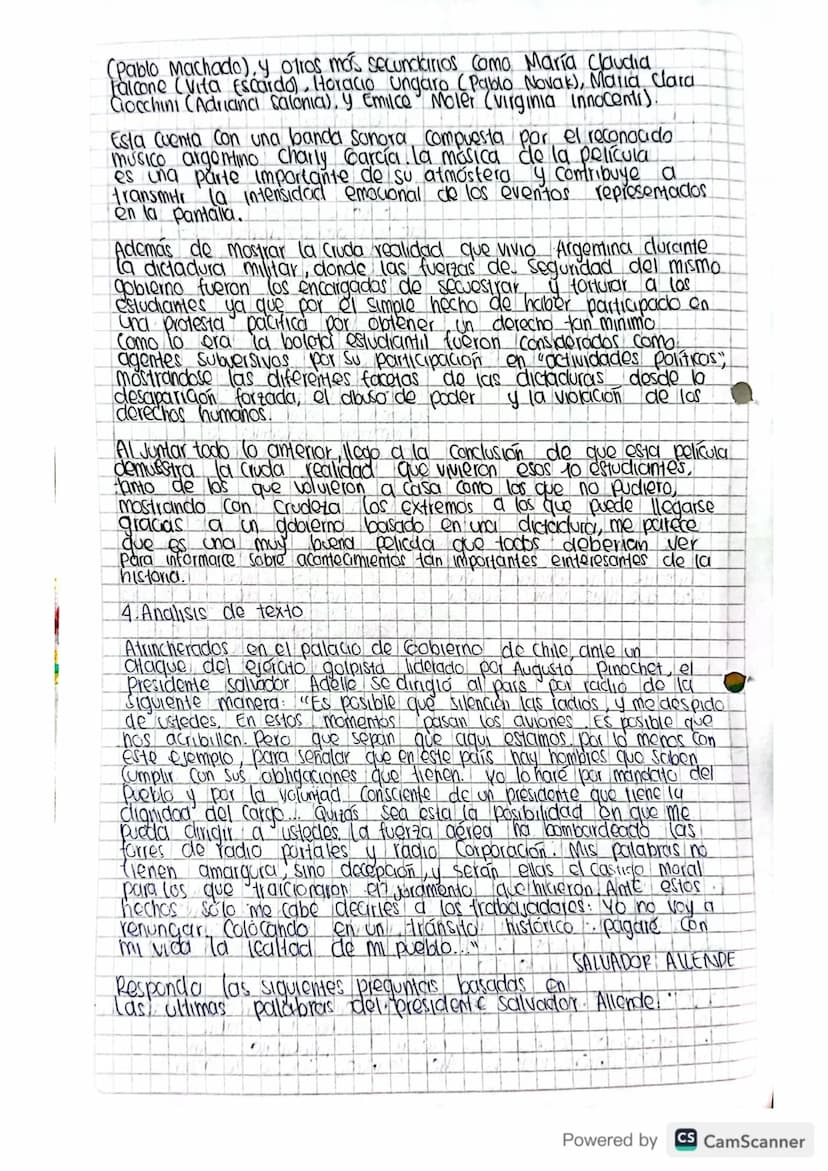 (Pablo Machado), y otros más secundarios como María Claudia
Falcone (Vita Escardo), Horacio Ungaro (Pablo Novak), María Clara
Ciocchini (Adriana Salonia), y Emilce Moler (Virginia Innocenti).
Esta cuenta con una banda sonora compuesta por el reconocido
músico argentino Charly García. la música de la película
es una parte importante de su atmósfera y contribuye a
transmitir la intensidad emocional de los eventos representados
en la pantalla.
Además de mostrar la cruda realidad que vivio Argentina durante
la dictadura militar, donde las fuerzas de seguridad del mismo
gobierno fueron los encargados de secuestrar y torturar a los
estudiantes ya que por el simple hecho de haber participado en
una protesta pacífica por obtener un derecho tan mínimo
como lo era la boleta estudiantil fueron considerados como
agentes subversivos por su participación en "actividades políticos",
mostrandose las diferentes facetas de las dictaduras desde la
desaparición forzada, el abuso de poder y la violación de los
derechos humanos.
Al juntar todo lo anterior, llego a la conclusión de que esta película
demuestra la cruda realidad que vivieron esos 10 estudiantes,
tanto de los que volvieron a casa como los que no pudiero,
mostrando con crudeza los extremos a los que puede llegarse
gracias a un gobierno basado en una dictadura, me parece
que es una muy buena película que todos deberían ver
para informarce sobre acontecimientos tan importantes einteresantes de la
historia.
4. Analisis de texto
Atrincherados en el palacio de Gobierno de Chile, ante un
ataque del ejército golpista liderado por Augusto Pinochet, el
Presidente Salvador Adelle se dirigió al país por radio de la
siguiente manera: "Es posible que silencien las radios, y me despido
de ustedes. En estos momentos pasan los aviones. Es posible que
nos acribillen. Pero que sepan que aquí estamos, por lo menos con
este ejemplo, para señalar que en este país hay hombres que saben
cumplir con sus obligaciones que tienen. Yo lo haré por mandato del
Pueblo y por la voluntad consciente de un presidente que tiene la
dignidad del cargo... Quizás sea esta la posibilidad en que me
pueda dirigir a ustedes. La fuerza aérea ha bombardeado las
torres de radio portales y radio Corporación. Mis palabras no
tienen amargura, sino decepción, y serán ellas el castigo moral
para los que traicionaron el juramento que hicieron. Ante estos
hechos, sólo me cabe decirles a los trabajadores: Yo no voy a
renungar. Colocando en un tránsito histórico pagaré con
mi vida la lealtad de mi pueblo..."
SALVADOR ALLENDE
Responda las siguientes preguntas basadas en
Las ultimas palabras del presidente Salvador Allende.
Powered by CS CamScanner